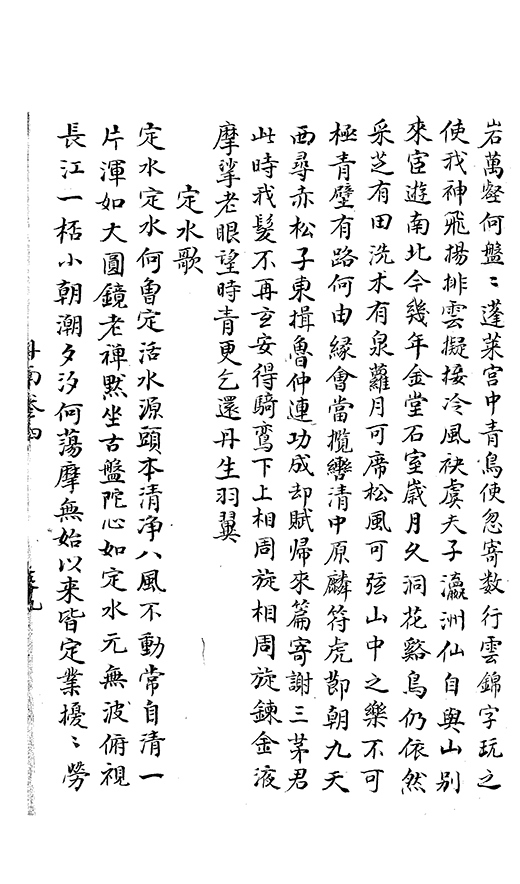 岩萬壑何盤〻蓬萊宮中青鳥使忽寄数行雲錦字玩之
使我神飛揚排雲擬接冷風袂虞夫子瀛洲仙自與山別
來宦遊南北今幾年金堂石室嵗月久洞花谿鳥仍依然
采芝有田洗朮有泉蘿月可席松風可弦山中之樂不可
極青壁有路何由縁會當攬轡清中原麟符虎節朝九天
西尋赤松子東揖魯仲連功成却賦帰來篇寄謝三茅君
此時我髮不再玄安得騎鸞下上相周旋相周旋鍊金液
摩挲老眼望時青更乞還丹生羽翼
定水歌
定水定水何曽定活水源頭本清净八風不動常自清一
片渾如大圓鏡老禅黙坐古盤陀心如定水元無波俯視
長江一栝小朝潮夕汐何蕩摩無始以來皆定業擾〻勞